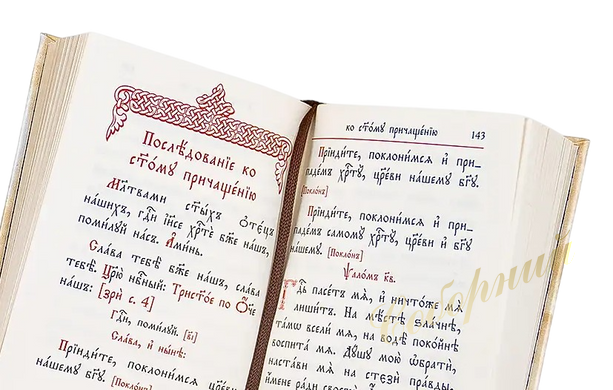 Послѣ́дованїе ко
ст҃о́мꙋ причаще́нїю
Мл҃твами ст҃ы́хъ ѻ҆тє́цъ
на́шихъ, гдⷭ҇и і҆и҃се хрⷭ҇те́ бж҃е на́шъ,
поми́лꙋй на́съ. А҆ми́нь.
Сла́ва тебѣ̀ бж҃е на́шъ, сла́ва
тебѣ̀. Цр҃ю̀ нбⷭ҇ный: Трист҃о́е по Ѻ҆́ч҃е
на́шъ: [зри̑ с. 4]
Гдⷭ҇и, поми́лꙋй. [в҃і]
Сла́ва, и҆ ны́нѣ:
Прїиди́те, поклони́мсѧ
[Поклѡ́нъ]
ко ст҃о́мꙋ причаще́нїю 143
Прїиди́те, поклони́мсѧ и҆ при-
паде́мъ хрⷭ҇тꙋ̀, цр҃е́ви на́шемꙋ бг҃ꙋ.
[Поклѡ́нъ]
Прїиди́те, поклони́мсѧ и҆ при-
паде́мъ самомꙋ̀ хрⷭ҇тꙋ̀, цр҃е́ви и҆ бг҃ꙋ
на́шемꙋ. [Поклѡ́нъ]
Ѱало́мъ к҃в.
Гдⷭ҇ь пасе́тъ мѧ̀, и҆ ничто́же мѧ̀
лиши́тъ. На мѣ́стѣ зла́чнѣ,
та́мѡ всели́ мѧ, на водѣ̀ поко́йнѣ
воспита́ мѧ. Дꙋ́шꙋ мою̀ ѡ҆братѝ,
наста́ви мѧ̀ на стєзѝ пра́вды,
и҆́мене ра́ди своегѡ̀